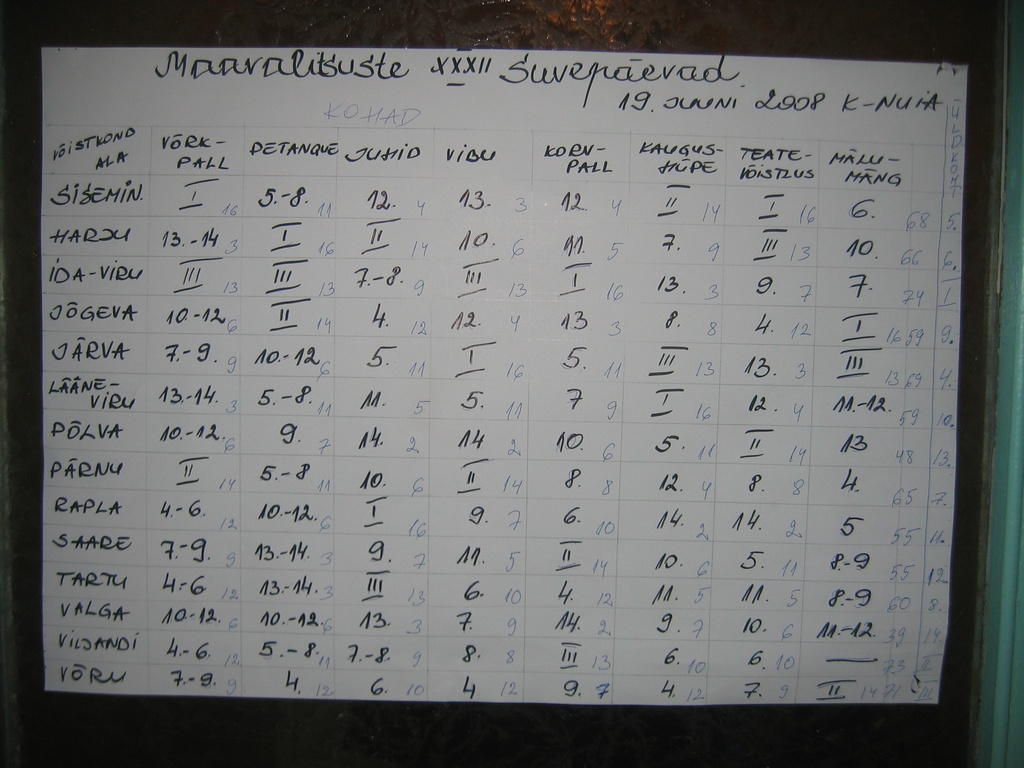 Maavalitsuste XXXII Suvepäevad
19. JUUNI 2008 K-NUIA
KOHAD
VÕISTKOND ALA VÕRK-PALL PETANQUE JUHID VIBU KORV-PALL KAUGUS-HÜPE TEATE-VÕISTLUS MÄLU-MÄNG ÜLDKOHT
SISEMIN. I 16 5.-8. 11 12. 4 13. 3 12 4 II 14 I 16 6. 68 5.
HARJU 13.-14 3 I 16 II 14 10. 6 11. 5 7. 9 III 13 10. 66 6.
IDA-VIRU III 13 III 13 7.-8. 9 III 13 I 16 13. 3 9. 7 7. 74 I
JÕGEVA 10.-12 6 II 14 4. 12 12. 4 13 3 8. 8 4. 12 I 16 59 9.
JÄRVA 7.-9. 9 10.-12 6 5. 11 I 16 5. 11 III 13 13. 3 III 13 69 4.
LÄÄNE-VIRU 13.-14. 3 5.-8. 11 11. 5 5. 11 7 9 I 16 12. 4 11.-12. 59 10.
PÕLVA 10.-12. 6 9. 7 14. 2 14 2 10. 6 5. 11 II 14 13 48 13.
PÄRNU II 14 5.-8 11 10. 6 II 14 8. 8 12. 4 8. 8 4. 65 7.
RAPLA 4.-6. 12 10.-12. 6 I 16 9. 7 6. 10 14. 2 14. 2 5 55 11.
SAARE 7.-9. 9 13.-14. 3 9. 7 11. 5 II 14 10. 6 5. 11 8-9 55 12
TARTU 4.-6 12 13.-14. 3 III 13 6. 10 4. 12 11. 5 11. 5 8.-9 60 8.
VALGA 10.-12. 6 10.-12. 6 13. 3 7. 9 14. 2 9. 7 10. 6 11.-12. 39 14.
VILJANDI 4.-6. 12 5.-8. 11 7.-8. 9 8. 8 III 13 6. 10 6. 10 — 73 II
VÕRU 7.-9. 9 4. 12 6. 10 4 12 9. 7 4. 12 7. 9 II 14 71 III